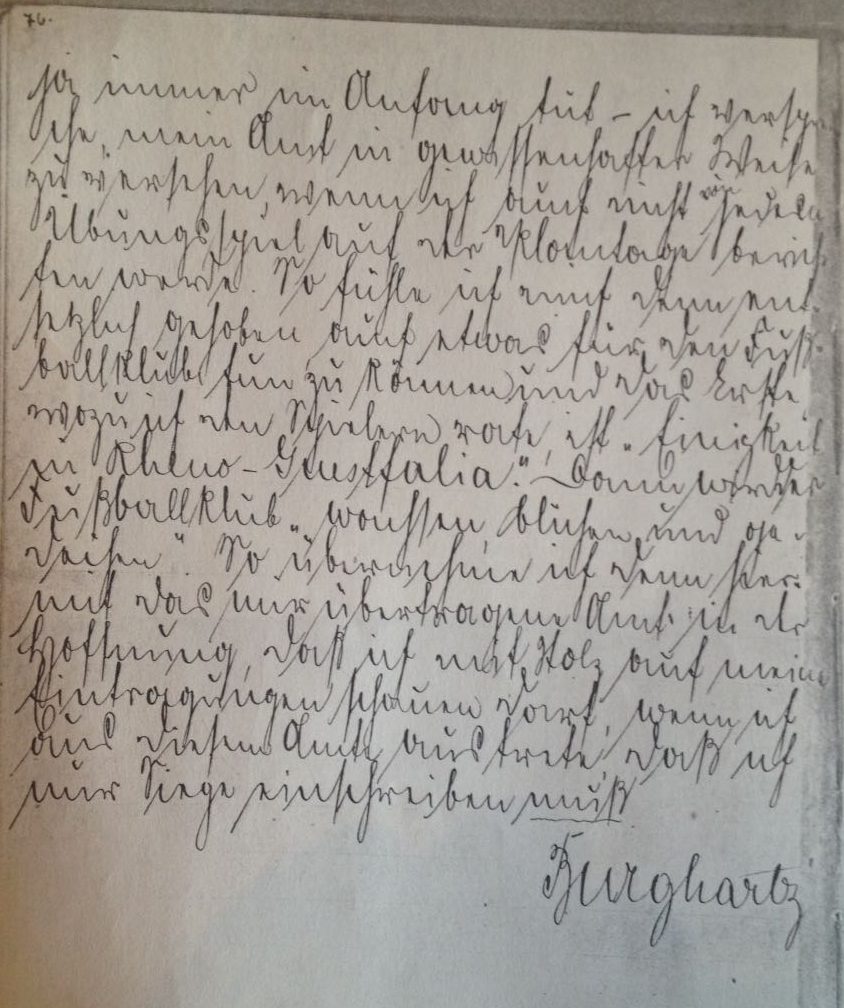 76.
ja immer im Anfang tut – ich verspre-
che, mein Amt in gewissenhafter Weise
zu versehen, wenn ich auch nicht von jedem
Übungsspiel auf der Plantage berich-
ten werde. So fühle ich mich denn ent-
setzlich gehoben auch etwas für den Fuß-
ballklub tun zu können und das Erste
wozu ich den Spielern rate, ist „Einigkeit
in Rheno-Guestfalia." Dann wird der
Fußballklub „wachsen, blühen und ge-
deihen". So übernehme ich denn hier-
mit das mir übertragene Amt in der
Hoffnung, daß ich mit Stolz auf meine
Eintragungen schauen darf, wenn ich
aus diesem Amte austrete, daß ich
nur Siege einschreiben muß
Burghartz